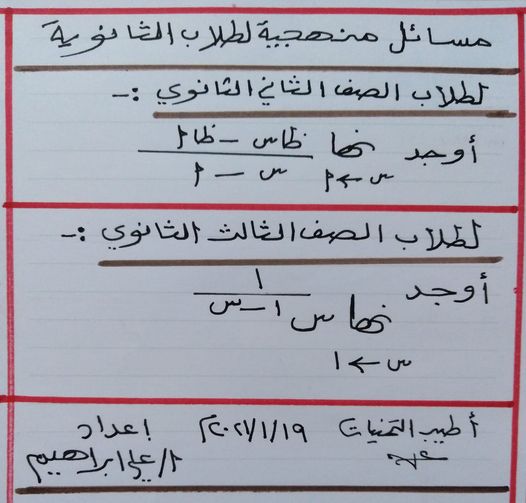 مسائل منهجية لطلاب الثانوية
لطلاب الصف الثاني الثانوي :-
أوجد نها ظاس - ظا٢
س - ٢
س ← ٢
لطلاب الصف الثالث الثانوي :-
أوجد نها س ١
١ - س
س ← ١
أطيب التمنيات ٢٠٢١/١/١٩م إعداد
أ/علي ابراهيم